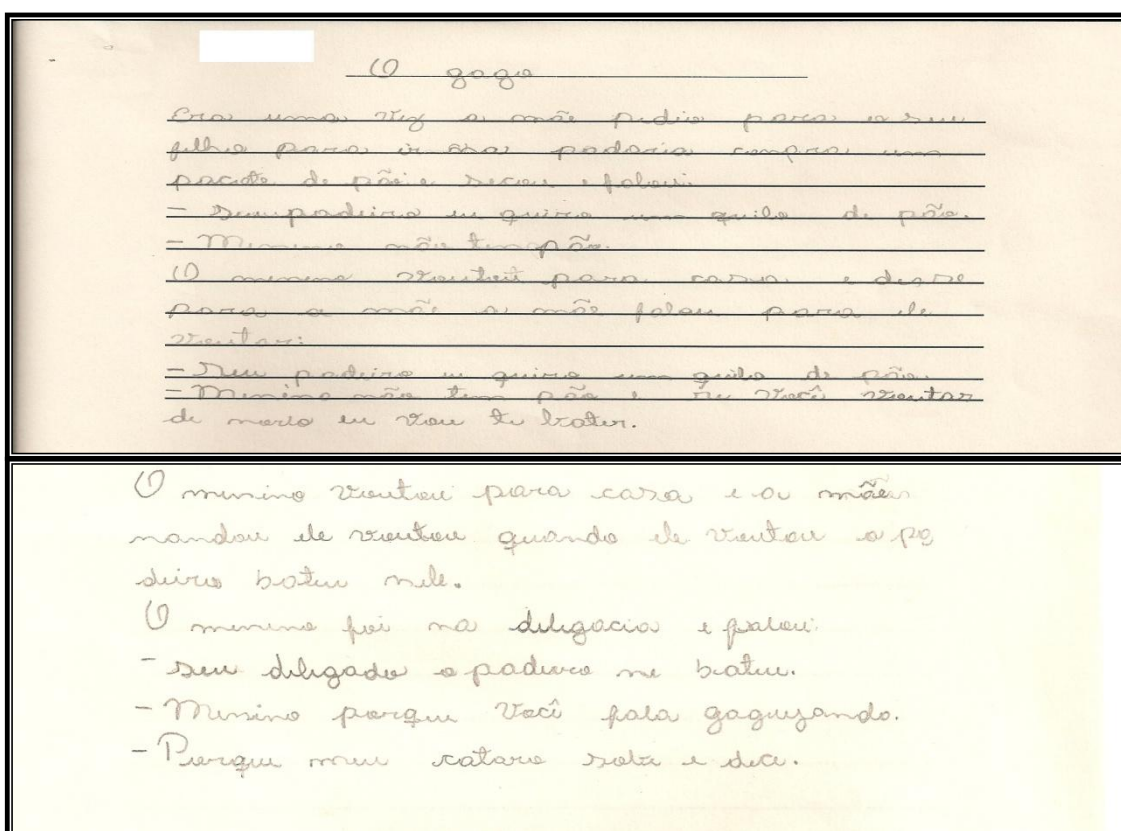 O gago
Era uma vez a mãe pediu para o seu
filho para ir na padaria compra um
pacote de pão e secou e falou:
- Seu padeiro eu quiro um quilo de pão.
- Menino não tem pão.
O menino voutou para casa e desse
para a mãe a mãe falou para ele
voutar:
- Seu padeiro eu quiro um quilo de pão.
- Menino não tem pão e se você voutar
de novo eu vou te bater.
O menino voutou para casa e a mãe
mandou ele voutou quando ele voutou o pa
deiro bateu nele.
O menino foi na diligacia e falou:
- seu diligado o padeiro me bateu.
- Menino porque você fala gaguejando.
- Porque meu cataro sobe e dece.